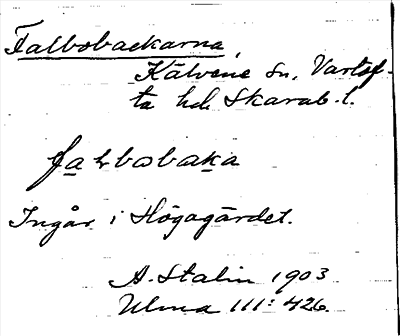 Falbobackarna,
Kälvene sn, Vartof-
ta hd. Skarab. l.
Ingår i Högagärdet.
A. Stalin 1903
Ulma 111: 426.